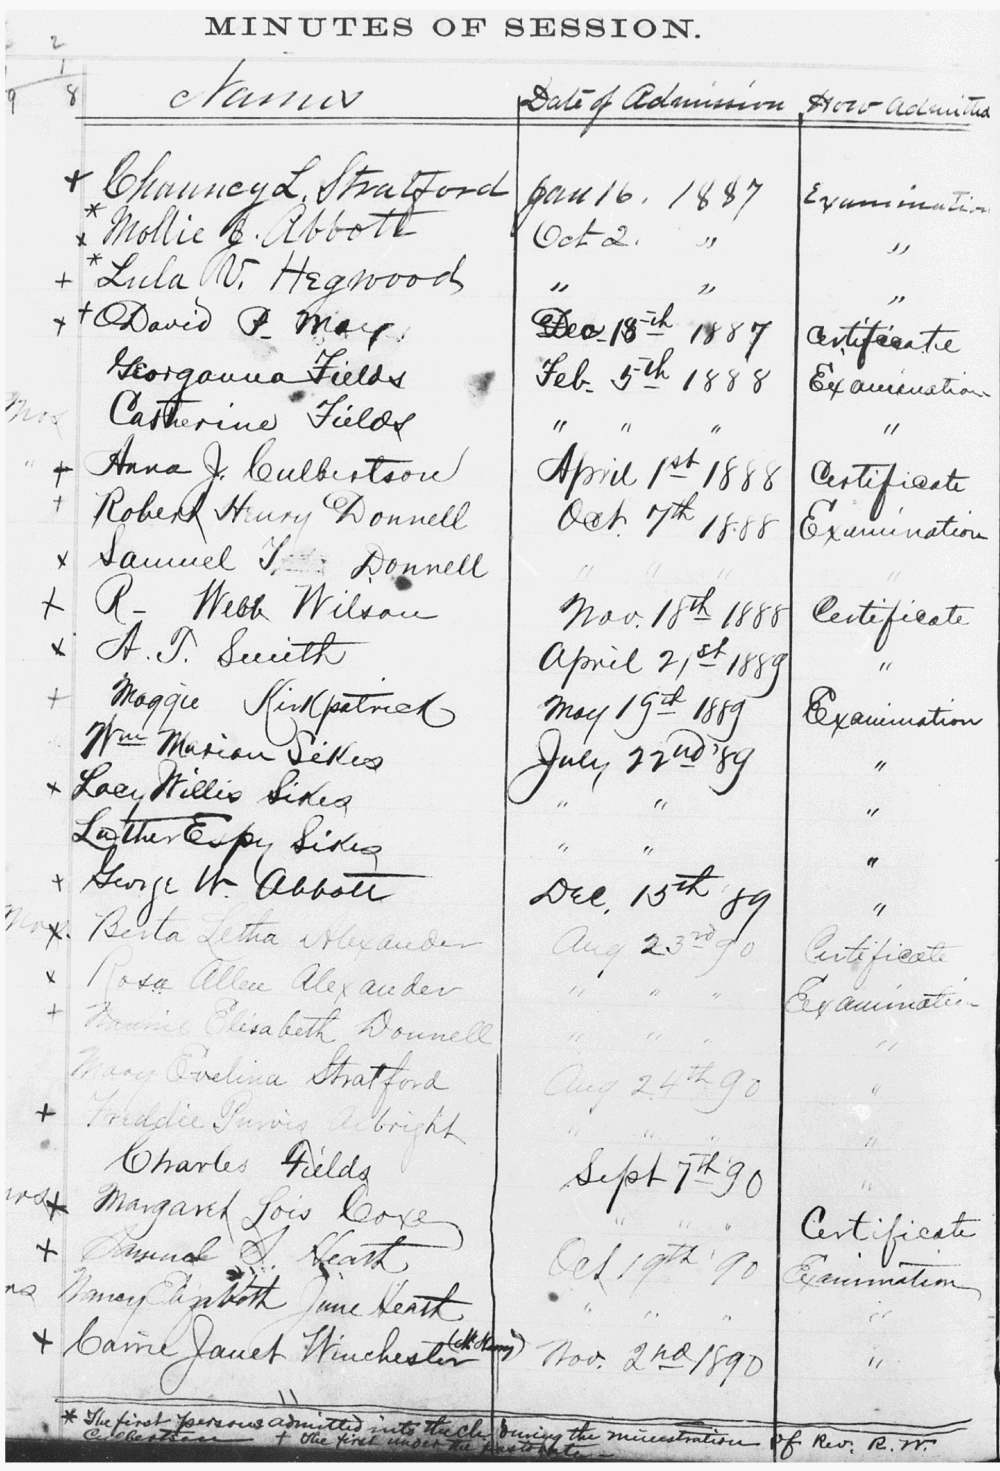 MINUTES OF SESSION.
2
1
9 8 Names Date of Admission How Admitted
+ Chauncy L. Stratford Jan 16. 1887 Examination
* x Mollie J. Abbott Oct 2. " "
+ * Lula V. Hegwood " " "
x + David P. May Dec. 18th 1887 Certificate
Georganna Fields Feb. 5th 1888 Examination
Mrs Catherine Fields " " " "
" + Anna J. Culbertson April 1st 1888 Certificate
+ Robert Henry Donnell Oct. 7th 1888 Examination
x Samuel Donnell " " " "
+ R- Webb Wilson Nov. 18th 1888 Certificate
x A. T. Smith April 21st 1889 "
+ Maggie Kirkpatrick May 19th 1889 Examination
Wm Marion Sikes July 22nd '89 "
x Lacy Willis Sikes " " "
Luther Espy Sikes " " "
x George W. Abbott Dec. 15th '89 "
Mrs. x Berta Letha Alexander Aug 23rd 90 Certificate
x Rosa Allen Alexander " " " Examination
+ Elisabeth Donnell " " " "
Mary Evelina Stratford Aug 24th 90 "
+ Freddie Purvis Albright " " " "
Charles Fields Sept 7th '90 "
+ Margaret Lois Coxe " " " Certificate
+ Samuel S. Heath Oct 19th '90 Examination
Nancy Elizabeth June Heath " " " "
+ Carrie Janet Winchester Nov. 2nd 1890 "
* The first persons admitted into the ch. during the ministration of Rev. R. W.
Culbertson + the first under the pastorate